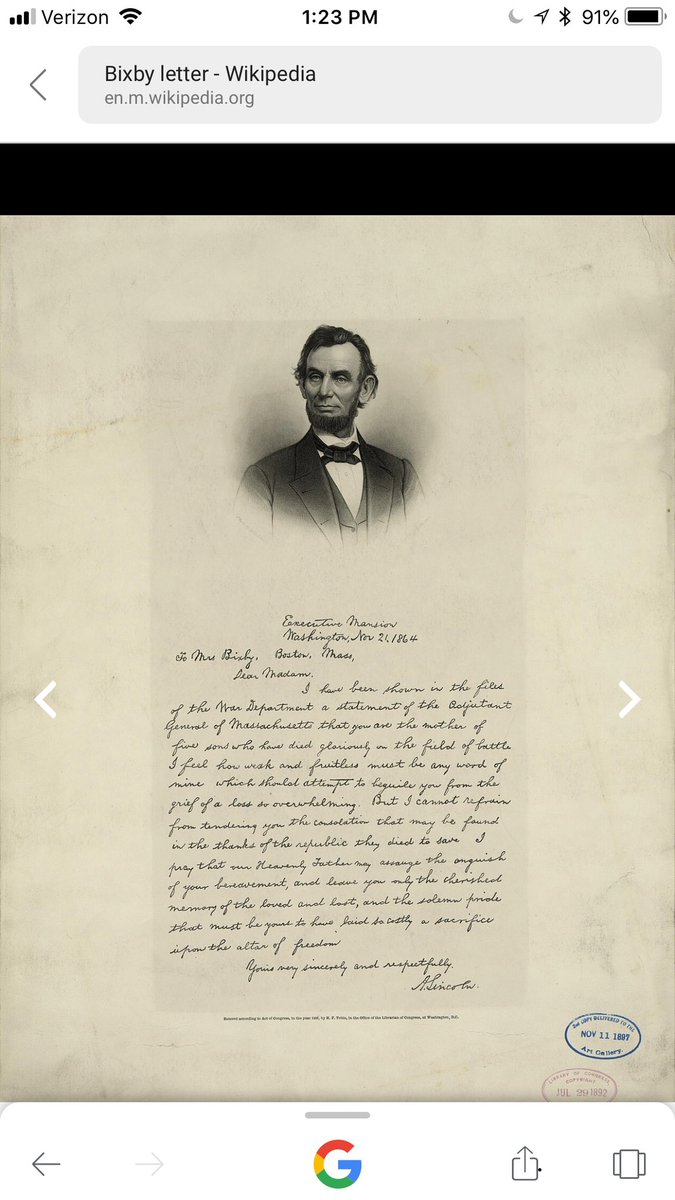 Verizon 1:23 PM 91%
Bixby letter - Wikipedia
en.m.wikipedia.org
Executive Mansion
Washington, Nov 21, 1864
To Mrs Bixby, Boston, Mass,
Dear Madam.
I have been shown in the files
of the War Department a statement of the Adjutant
General of Massachusetts that you are the mother of
five sons who have died gloriously on the field of battle
I feel how weak and fruitless must be any word of
mine which should attempt to beguile you from the
grief of a loss so overwhelming. But I cannot refrain
from tendering you the consolation that may be found
in the thanks of the republic they died to save I
pray that our Heavenly Father may assuage the anguish
of your bereavement, and leave you only the cherished
memory of the loved and lost, and the solemn pride
that must be yours to have laid so costly a sacrifice
upon the altar of freedom
Yours very sincerely and respectfully.
A. Lincoln.
Entered according to Act of Congress, in the year by in the Office of the Librarian of Congress, at Washington, D.C.
COPY DELIVERED TO THE
NOV 11 1887
Art Gallery.
LIBRARY OF CONGRESS
COPYRIGHT
JUL 29 1892
G